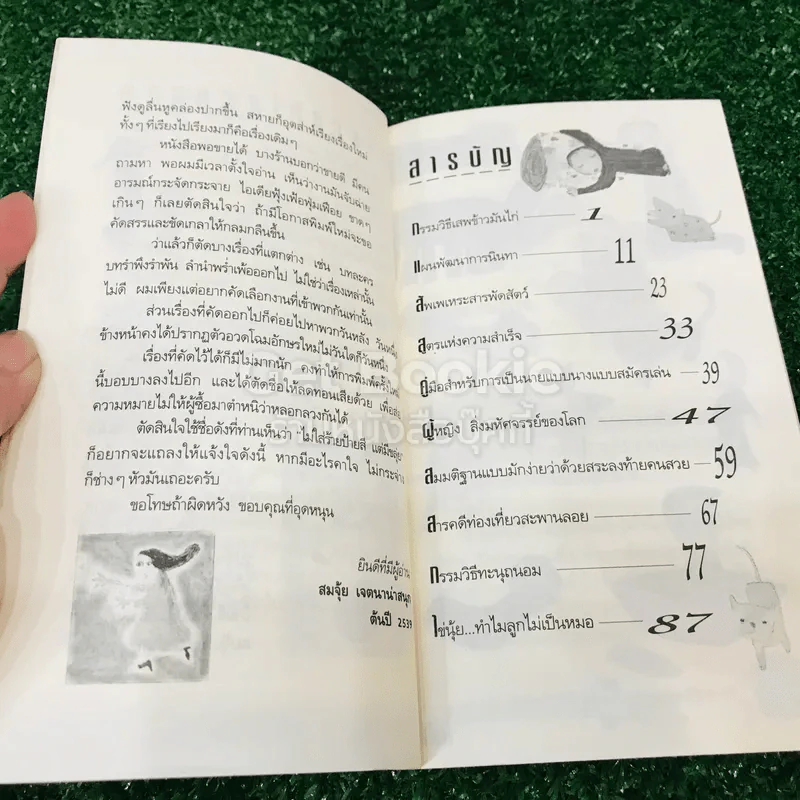 ฟังดูลื่นหูคล่องปากขึ้น สหายก็อุตส่าห์เรียงเรื่องใหม่
ทั้งๆ ที่เรียงไปเรียงมาก็คือเรื่องเดิมๆ
หนังสือพอขายได้ บางร้านบอกว่าขายดี มีคน
ถามหา พอผมมีเวลาตั้งใจอ่าน เห็นว่างานมันจับฉ่าย
อารมณ์กระจัดกระจาย ไอเดียฟุ้งเฟ้อฟุ่มเฟือย ขาดๆ
เกินๆ ก็เลยตัดสินใจว่า ถ้ามีโอกาสพิมพ์ใหม่จะขอ
คัดสรรและขัดเกลาให้กลมกลืนขึ้น
ว่าแล้วก็ตัดบางเรื่องที่แตกต่าง เช่น บทละคร
บทรำพึงรำพัน ลำนำพร่ำเพ้อออกไป ไม่ใช่ว่าเรื่องเหล่านั้น
ไม่ดี ผมเพียงแต่อยากคัดเลือกงานที่เข้าพวกกันเท่านั้น
ส่วนเรื่องที่คัดออกไปก็ค่อยไปหาพวกวันหลัง วันหนึ่ง
ข้างหน้าคงได้ปรากฏตัวอวดโฉมอักษรใหม่ไม่วันใดก็วันหนึ่ง
เรื่องที่คัดไว้ได้ก็มีไม่มากนัก องทำให้การพิมพ์ครั้งใหม่
นี้บอบบางลงไปอีก และได้ตัดชื่อให้ลดทอนเสียด้วย เพื่อสื่อ
ความหมายไม่ให้ผู้ซื้อมาตำหนิว่าหลอกลวงกันได้
ตัดสินใจใช้ชื่อดังที่ท่านเห็นว่า "ไม่ใส่ร้ายป้ายสี แต่มี
ก็อยากจะแถลงให้แจ้งใจดังนี้ หากมีอะไรคาใจ ไม่กระจ่าง
ก็ช่างๆ หัวมันเถอะครับ
ขอโทษถ้าผิดหวัง ขอบคุณที่อุดหนุน
ยินดีที่มีผู้อ่าน
สมจุ้ย เจตนาน่าสนุก
ต้นปี 2539
สารบัญ
กรรมวิธีเสพข้าวมันไก่ 1
แผนพัฒนาการนินทา 11
สัพเพเหระสารพัดสัตว์ 23
สูตรแห่งความสำเร็จ 33
คู่มือสำหรับการเป็นนายแบบนางแบบสมัครเล่น 39
ผู้หญิง สิ่งมหัศจรรย์ของโลก 47
สมมติฐานแบบมักง่ายว่าด้วยสระลงท้ายคนสวย 59
สารคดีท่องเที่ยวสะพานลอย 67
กรรมวิธีทะนุถนอม 77
ไข่นุ้ย...ทำไมลูกไม่เป็นหมอ 87
Get Bookie